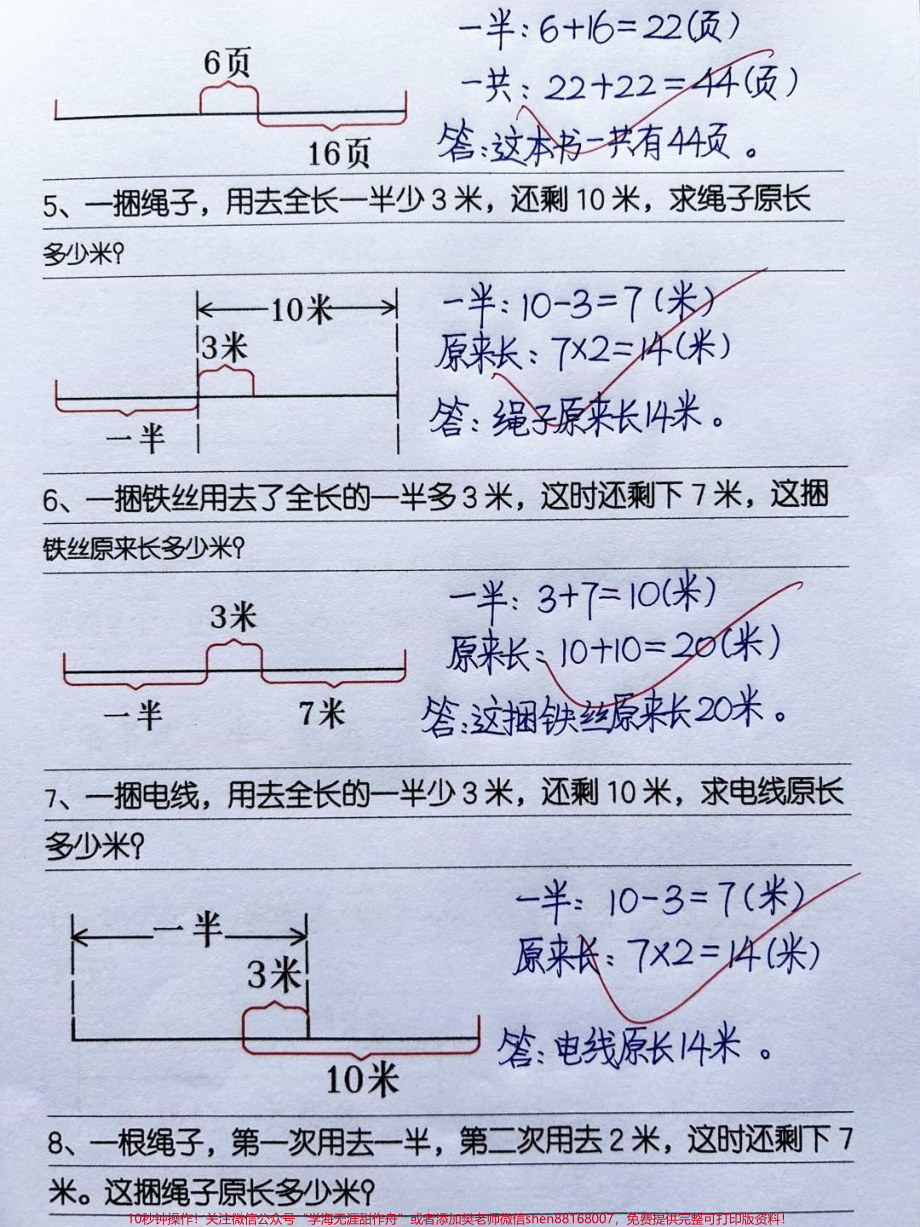 一半:6+16=22(页)
6页
一共:22+22=44(页)
16页
答:这本书一共有44页。
5、一捆绳子，用去全长一半少3米，还剩10米，求绳子原长
多少米？
10米
一半:10-3=7(米)
3米
原来长:7×2=14(米)
一半
答:绳子原来长14米。
6、一捆铁丝用去了全长的一半多3米，这时还剩下7米，这捆
铁丝原来长多少米？
3米
一半:3+7=10(米)
原来长:10+10=20(米)
一半
7米
答:这捆铁丝原来长20米。
7、一捆电线，用去全长的一半少3米，还剩10米，求电线原长
多少米？
一半
一半:10-3=7(米)
3米
原来长:7×2=14(米)
10米
答:电线原长14米。
8、一根绳子，第一次用去一半，第二次用去2米，这时还剩下7
米。这捆绳子原长多少米？
10秒钟操作！关注微信公众号“学海无涯甜作舟”或者添加樊老师微信shen88168007，免费提供完整可打印版资料！